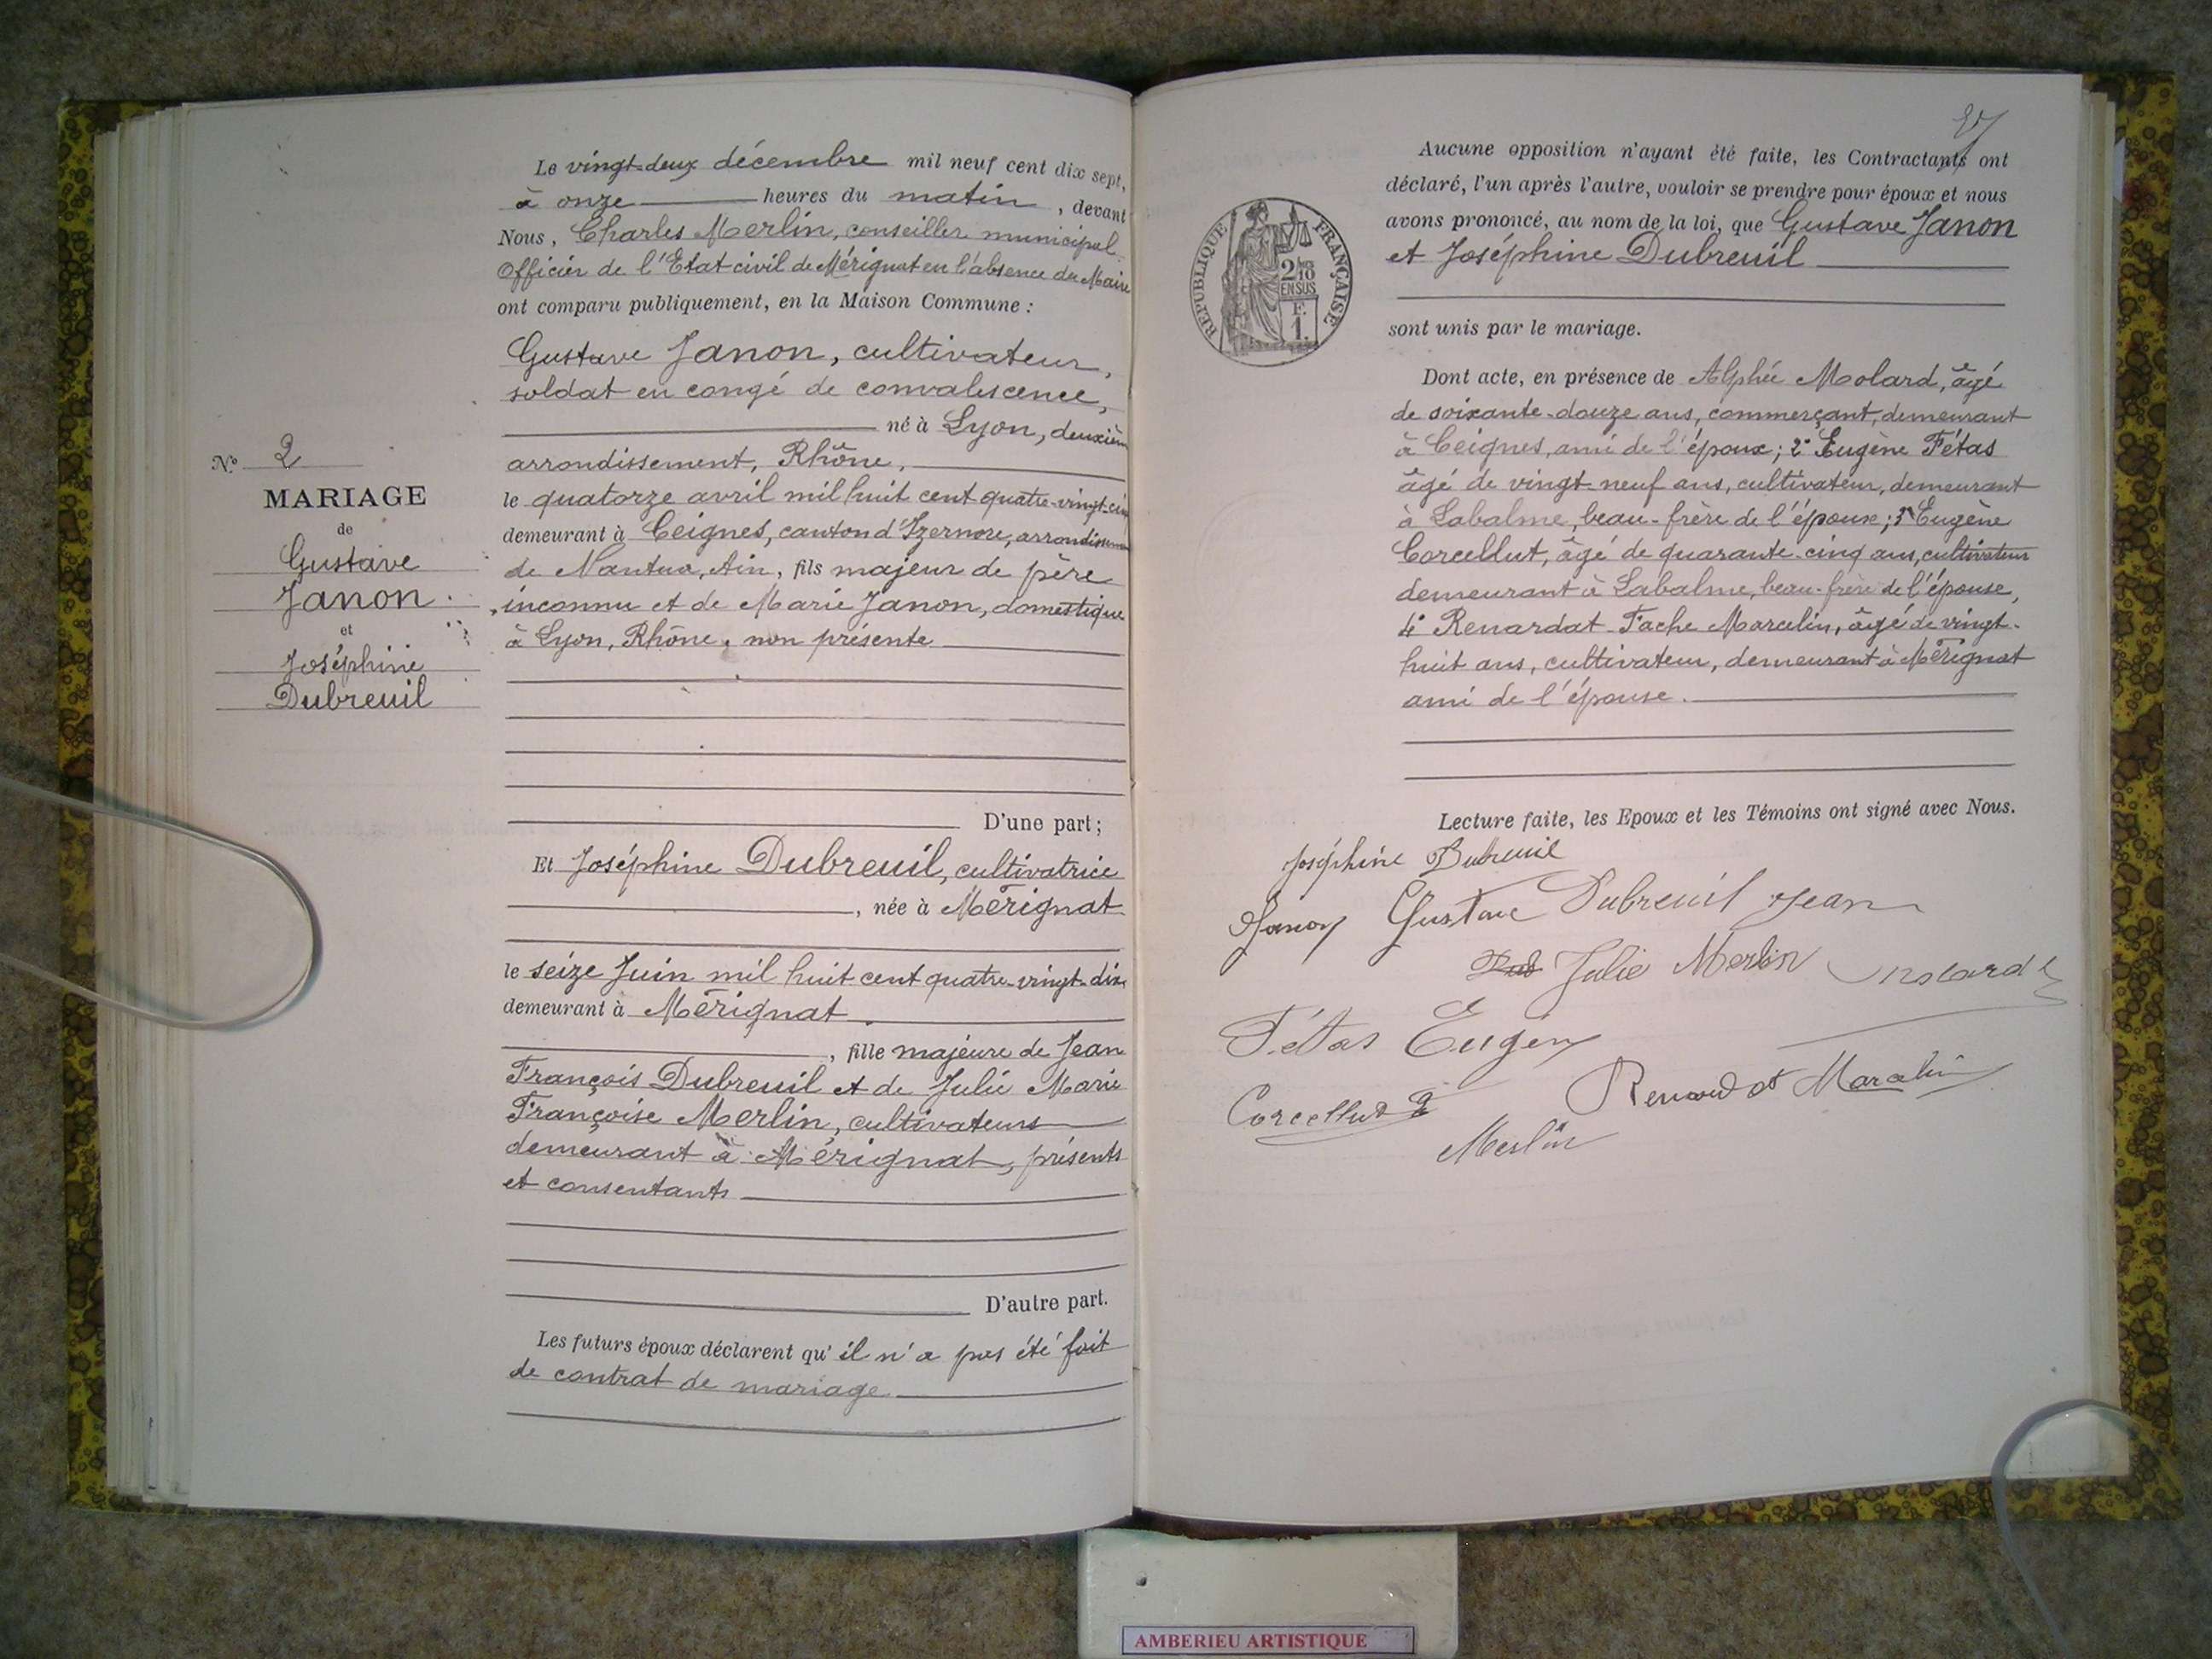 Le vingt-deux décembre mil neuf cent dix sept,
à onze heures du matin, devant
Nous, Charles Merlin, conseiller municipal
Officier de l'Etat civil de Mérignat en l'absence du Maire
ont comparu publiquement, en la Maison Commune :
Gustave Janon, cultivateur,
soldat en congé de convalescence,
né à Lyon, deuxièm
arrondissement, Rhône,
le quatorze avril mil huit cent quatre-vingt-cinq
demeurant à Ceignes, canton d'Izernore, arrondissement
de Nantua, Ain, fils majeur de père
inconnu et de Marie Janon, domestique
à Lyon, Rhône, non présente
D'une part ;
Et Joséphine Dubreuil, cultivatrice
, née à Mérignat
le seize Juin mil huit cent quatre-vingt-dix
demeurant à Mérignat
, fille majeure de Jean
François Dubreuil et de Julie Marie
Françoise Merlin, cultivateurs
demeurant à Mérignat, présents
et consentants
D'autre part.
Les futurs époux déclarent qu'il n'a pas été fait
de contrat de mariage
N.º 2
MARIAGE
de
Gustave
Janon
et
Joséphine
Dubreuil
Aucune opposition n'ayant été faite, les Contractants ont
déclaré, l'un après l'autre, vouloir se prendre pour époux et nous
avons prononcé, au nom de la loi, que Gustave Janon
et Joséphine Dubreuil
sont unis par le mariage.
Dont acte, en présence de Alphée Molard, âgé
de soixante-douze ans, commerçant, demeurant
à Ceignes, ami de l'époux ; 2º Eugène Fétas
âgé de vingt-neuf ans, cultivateur, demeurant
à Labalme, beau-frère de l'épouse ; 3º Eugène
Corcellut, âgé de quarante-cinq ans, cultivateur
demeurant à Labalme, beau-frère de l'épouse,
4º Renardat-Fache Marcelin, âgé de vingt-
huit ans, cultivateur, demeurant à Mérignat
ami de l'épouse.
Lecture faite, les Epoux et les Témoins ont signé avec Nous.
Joséphine Dubreuil
Janon Gustave Dubreuil Jean
Julie Merlin Molard
Fétas Eugène
Corcellut E Renardat Marcelin
Merlin
RÉPUBLIQUE FRANÇAISE
2/10
EN SUS
F.
1.
AMBERIEU ARTISTIQUE